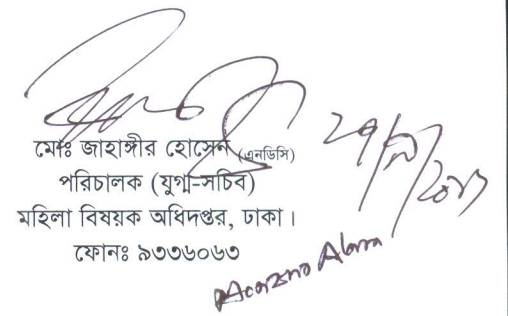 মোঃ জাহাঙ্গীর হোসেন (এনডিসি)
পরিচালক (যুগ্ম-সচিব)
মহিলা বিষয়ক অধিদপ্তর, ঢাকা।
ফোনঃ ৯৩৩৬০৬৩